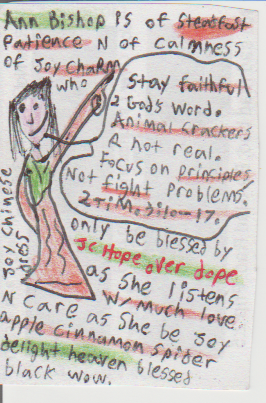 Ann Bishop is of steadfast
patience N of calmness
of Joy charm
who
Stay faithful
2 God's word.
Animal crackers
R not real.
Focus on principles
Not fight problems.
2 Tim. 3:10-17.
Joy Chinese
dress
only be blessed by
JC Hope over dope
as she listens
W/ much love.
N care as she be Joy
apple cinnamon spider
delight heaven blessed
black wow.